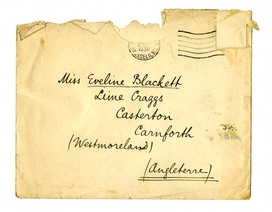 Miss Eveline Blackett
Lime Craggs
Casterton
Carnforth
(Westmoreland)
(Angleterre)